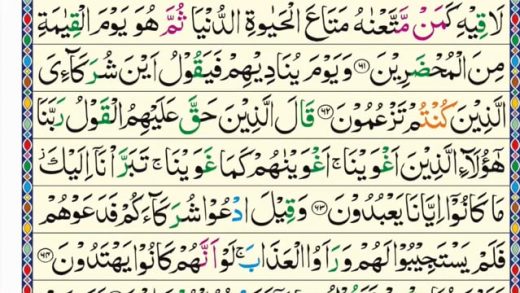 لَاقِيْهِ كَمَنْ مَّتَّعْنٰهُ مَتَاعَ الْحَيٰوةِ الدُّنْيَا ثُمَّ هُوَ يَوْمَ الْقِيٰمَةِ
مِنَ الْمُحْضَرِيْنَ ﴿۶۱﴾ وَيَوْمَ يُنَادِيْهِمْ فَيَقُوْلُ اَيْنَ شُرَكَآءِىَ
الَّذِيْنَ كُنْتُمْ تَزْعُمُوْنَ ﴿۶۲﴾ قَالَ الَّذِيْنَ حَقَّ عَلَيْهِمُ الْقَوْلُ رَبَّنَا
هٰٓؤُلَآءِ الَّذِيْنَ اَغْوَيْنَا ۚ اَغْوَيْنٰهُمْ كَمَا غَوَيْنَا ۚ تَبَرَّاْنَآ اِلَيْكَ ؗ
مَا كَانُوْٓا اِيَّانَا يَعْبُدُوْنَ ﴿۶۳﴾ وَقِيْلَ ادْعُوْا شُرَكَآءَكُمْ فَدَعَوْهُمْ
فَلَمْ يَسْتَجِيْبُوْا لَهُمْ وَرَاَوُا الْعَذَابَ ۚ لَوْ اَنَّهُمْ كَانُوْا يَهْتَدُوْنَ ﴿۶۴﴾